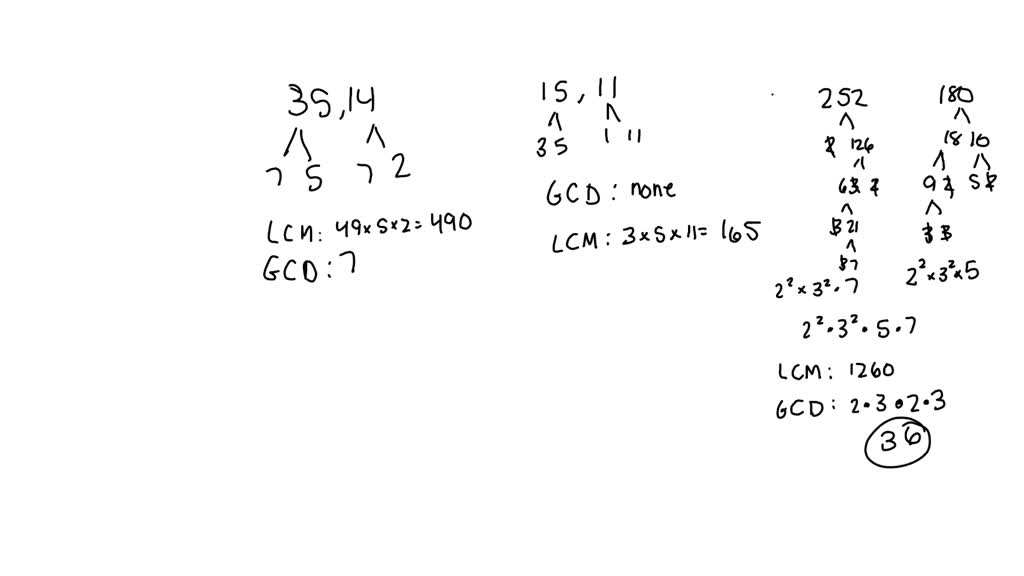 35, 14
7 5 7 2
LCM: 49 × 5 × 2 = 490
GCD: 7
15, 11
3 5 1 11
GCD: none
LCM: 3 × 5 × 11 = 165
252
2 126
63 2
3 21
3 7
2² × 3² · 7
180
18 10
9 2 5 2
3 3
2² × 3² × 5
2² · 3² · 5 · 7
LCM: 1260
GCD: 2 · 3 · 2 · 3
36